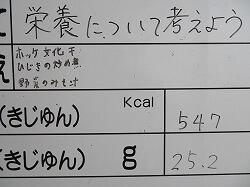 栄養について考えよう
ホッケ文化干
ひじきの炒め煮
野菜のみそ汁
Kcal
(きじゅん) 547
(きじゅん) g 25.2